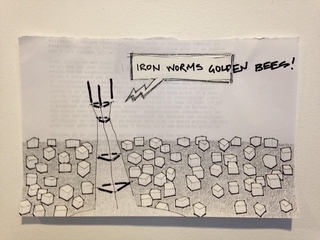 IRON WORMS GOLDEN BEES!